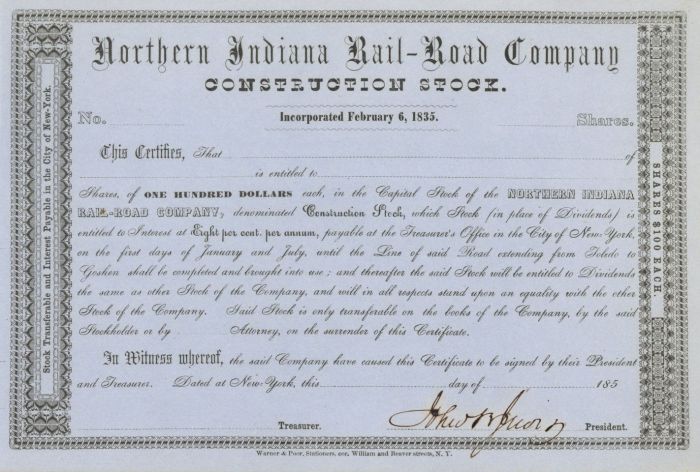 Northern Indiana Rail-Road Company
CONSTRUCTION STOCK.
Incorporated February 6, 1835.
No. Shares.
This Certifies, That of
is entitled to
Shares, of ONE HUNDRED DOLLARS each, in the Capital Stock of the NORTHERN INDIANA
RAIL-ROAD COMPANY, denominated Construction Stock, which Stock (in place of Dividends) is
entitled to Interest at Eight per cent. per annum, payable at the Treasurer's Office in the City of New-York,
on the first days of January and July, until the Line of said Road extending from Toledo to
Goshen shall be completed and brought into use; and thereafter the said Stock will be entitled to Dividends
the same as other Stock of the Company, and will in all respects stand upon an equality with the other
Stock of the Company. Said Stock is only transferable on the books of the Company, by the said
Stockholder or by Attorney, on the surrender of this Certificate.
In Witness whereof, the said Company have caused this Certificate to be signed by their President
and Treasurer. Dated at New-York, this day of 185
Treasurer. President.
Warner & Poor, Stationers, cor. William and Beaver streets, N. Y.
Stock Transferable and Interest Payable in the City of New-York.
SHARES $100 EACH.